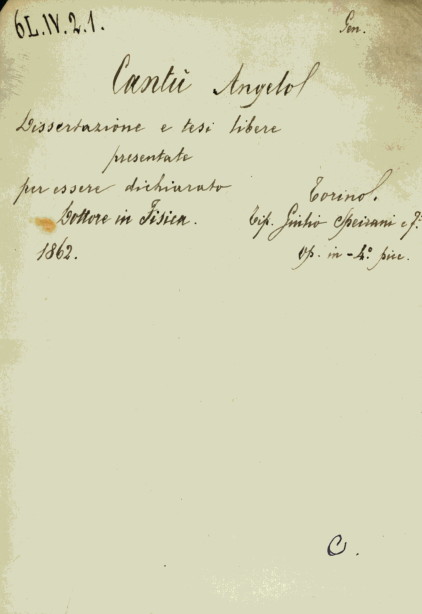 6L.IV.2.1.
Gen.
Cantù Angelo
Dissertazione e tesi libere
presentate
per essere dichiarato
Dottore in Fisica.
1862.
Torino.
Tip. Giulio Speirani e F.i
Op. in-4.° picc.
C.